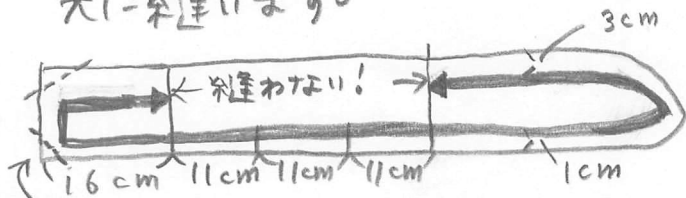 先に縫います。
3cm
←縫わない！→
16cm 11cm 11cm 11cm 1cm